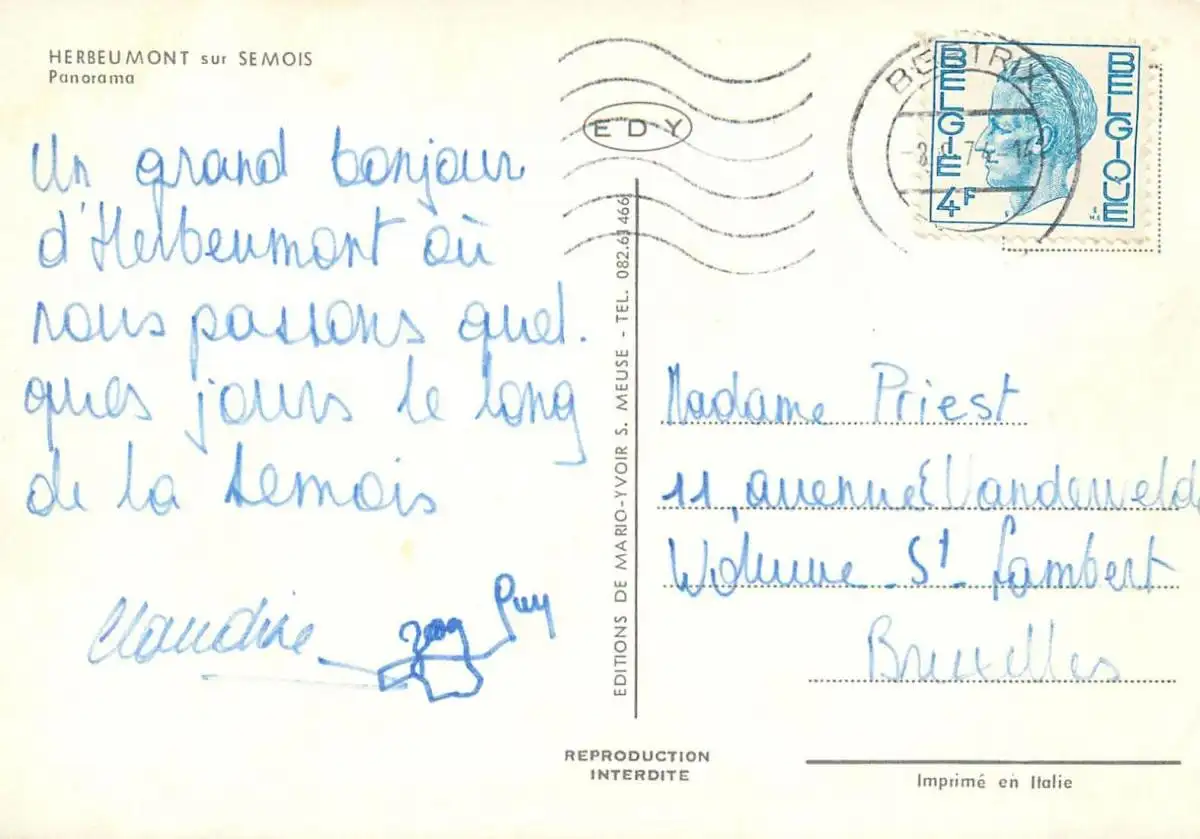 HERBEUMONT sur SEMOIS
Panorama
Un grand bonjour
d'Herbeumont où
nous passons quel.
ques jours le long
de la Semois
Claudine
Guy
EDY
EDITIONS DE MARIO-YVOIR S. MEUSE - TEL. 082.61 466
REPRODUCTION
INTERDITE
BERTRIX
74
BELGIE
4F
BELGIQUE
Madame Priest
11, avenue E Vandervelde
Woluwe St Lambert
Bruxelles
Imprimé en Italie